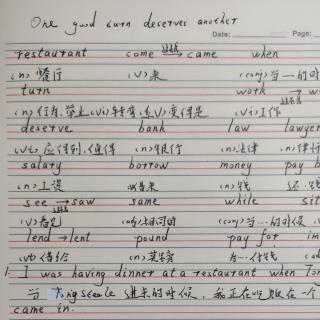 One good turn deserves another
Date: Page:
restaurant come 过去式→ came when
(n) 餐厅 (v) 来 (conj) 当…的时
turn work →
(n) 行为,举止 (vi) 转弯,系v 变得是 (vi) 工作
deserve bank law lawyer
(vt) 应得到,值得 (n) 银行 (n) 法律 (n) 律师
salary borrow money pay b
(n) 工资 借来 (n) 钱 还
see 过去式→ saw same while sit
(v) 看见 相同的 (conj) 当…的时候
lend → lent pound pay for im
(vt) 借给 (n) 英镑 付钱
1. I was having dinner at a restaurant when Ton
当 Tony Steele 进来的时候,我正在吃饭在一个
came in.